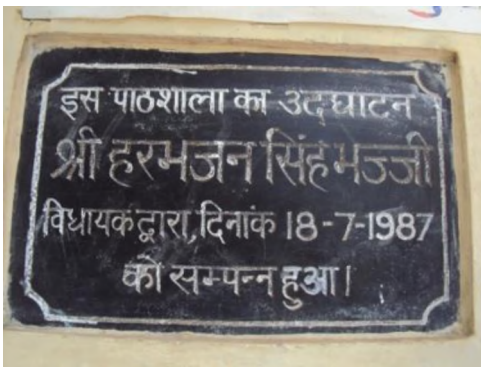 इस पाठशाला का उदघाटन
श्री हरभजन सिंह भज्जी
विधायक द्वारा, दिनांक 18-7-1987
को सम्पन्न हुआ।